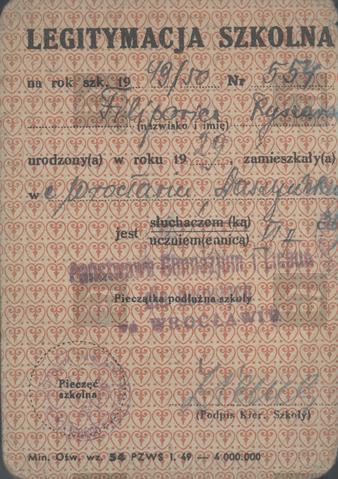 LEGITYMACJA SZKOLNA
na rok szk. 19 49/50 Nr 554
Filipowicz Ryszard
(nazwisko i imię)
urodzony(a) w roku 19 , zamieszkały(a)
w Wrocławiu
jest słuchaczem (ką)
uczniem(ennicą)
Państwowe Gimnazjum i Liceum
Pieczątka podłużna szkoły
we WROCŁAWIU
Pieczęć
szkolna
(Podpis Kier. Szkoły)
Min. Ośw. wz. 54 PZWS I. 49 — 4 000.000